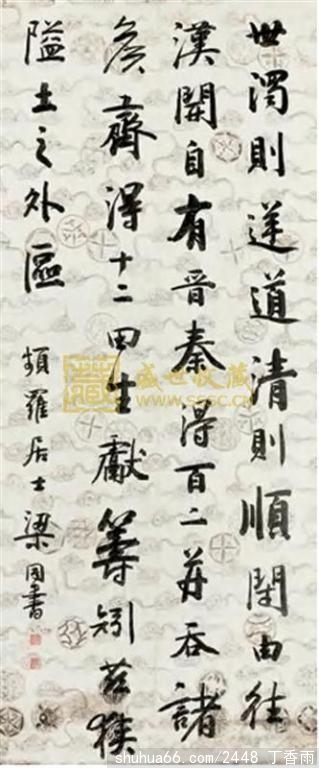 世濁則逆道清則順閉由往
漢開自有晉秦得百二并吞諸
侯齊得十二田生獻籌矧茲狹
隘土之外區
頻羅居士梁同書
盛世收藏
www.sssc.cn
shuhua66.com/2448 丁香雨